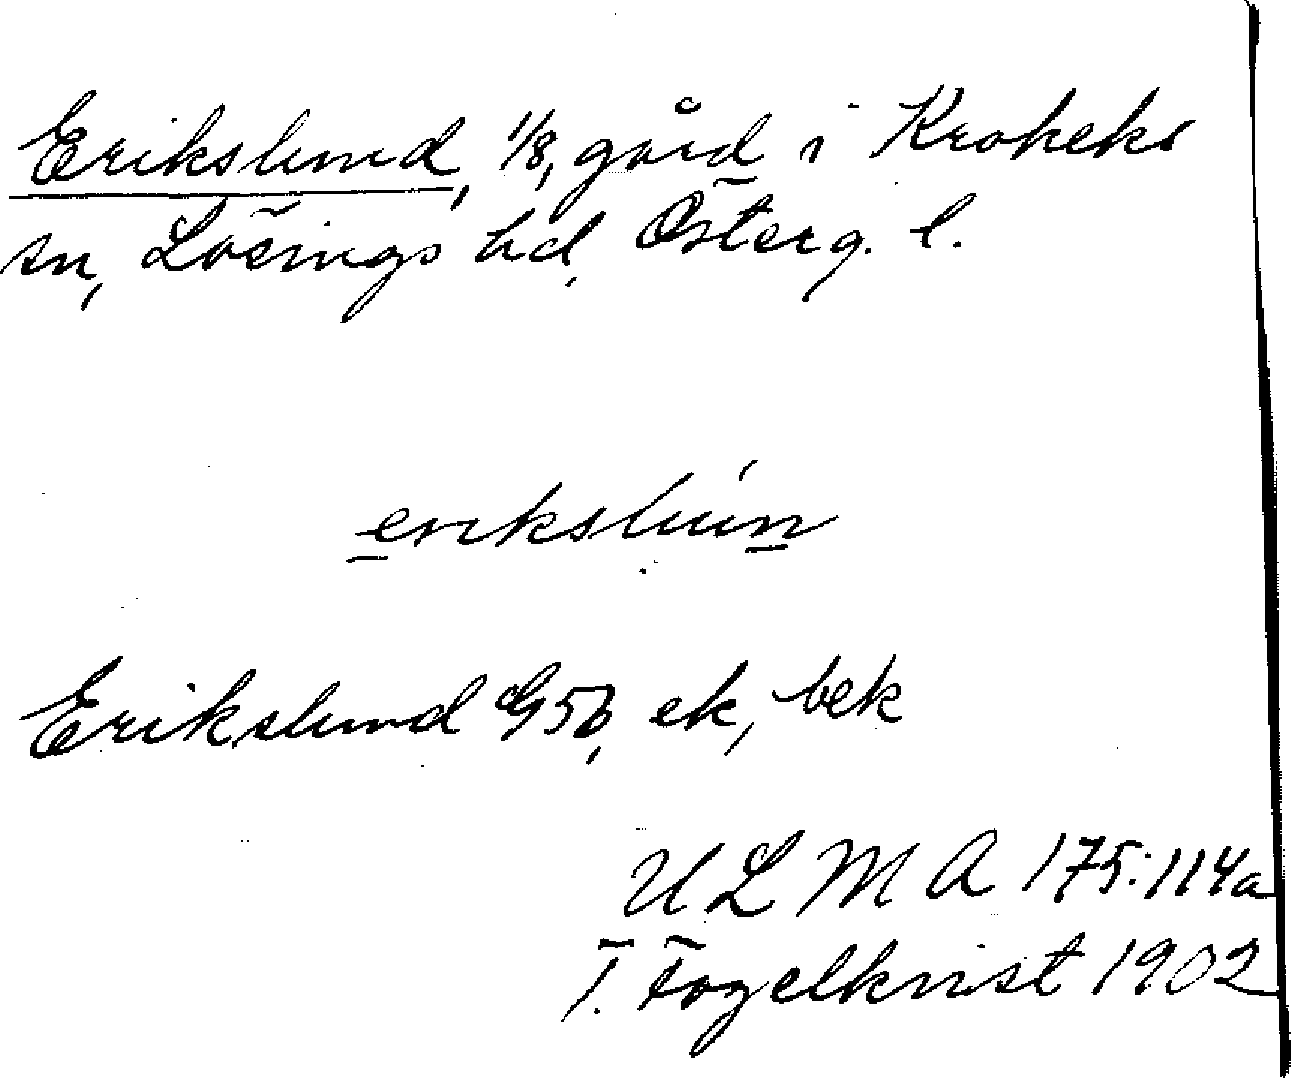 Erikslund, 1/8, gård i Krokeks
sn, Lösings hd, Österg. l.
erikslún
Erikslund G5b, ek, bek
ULMA 175:114a
T. Fogelkvist 1902